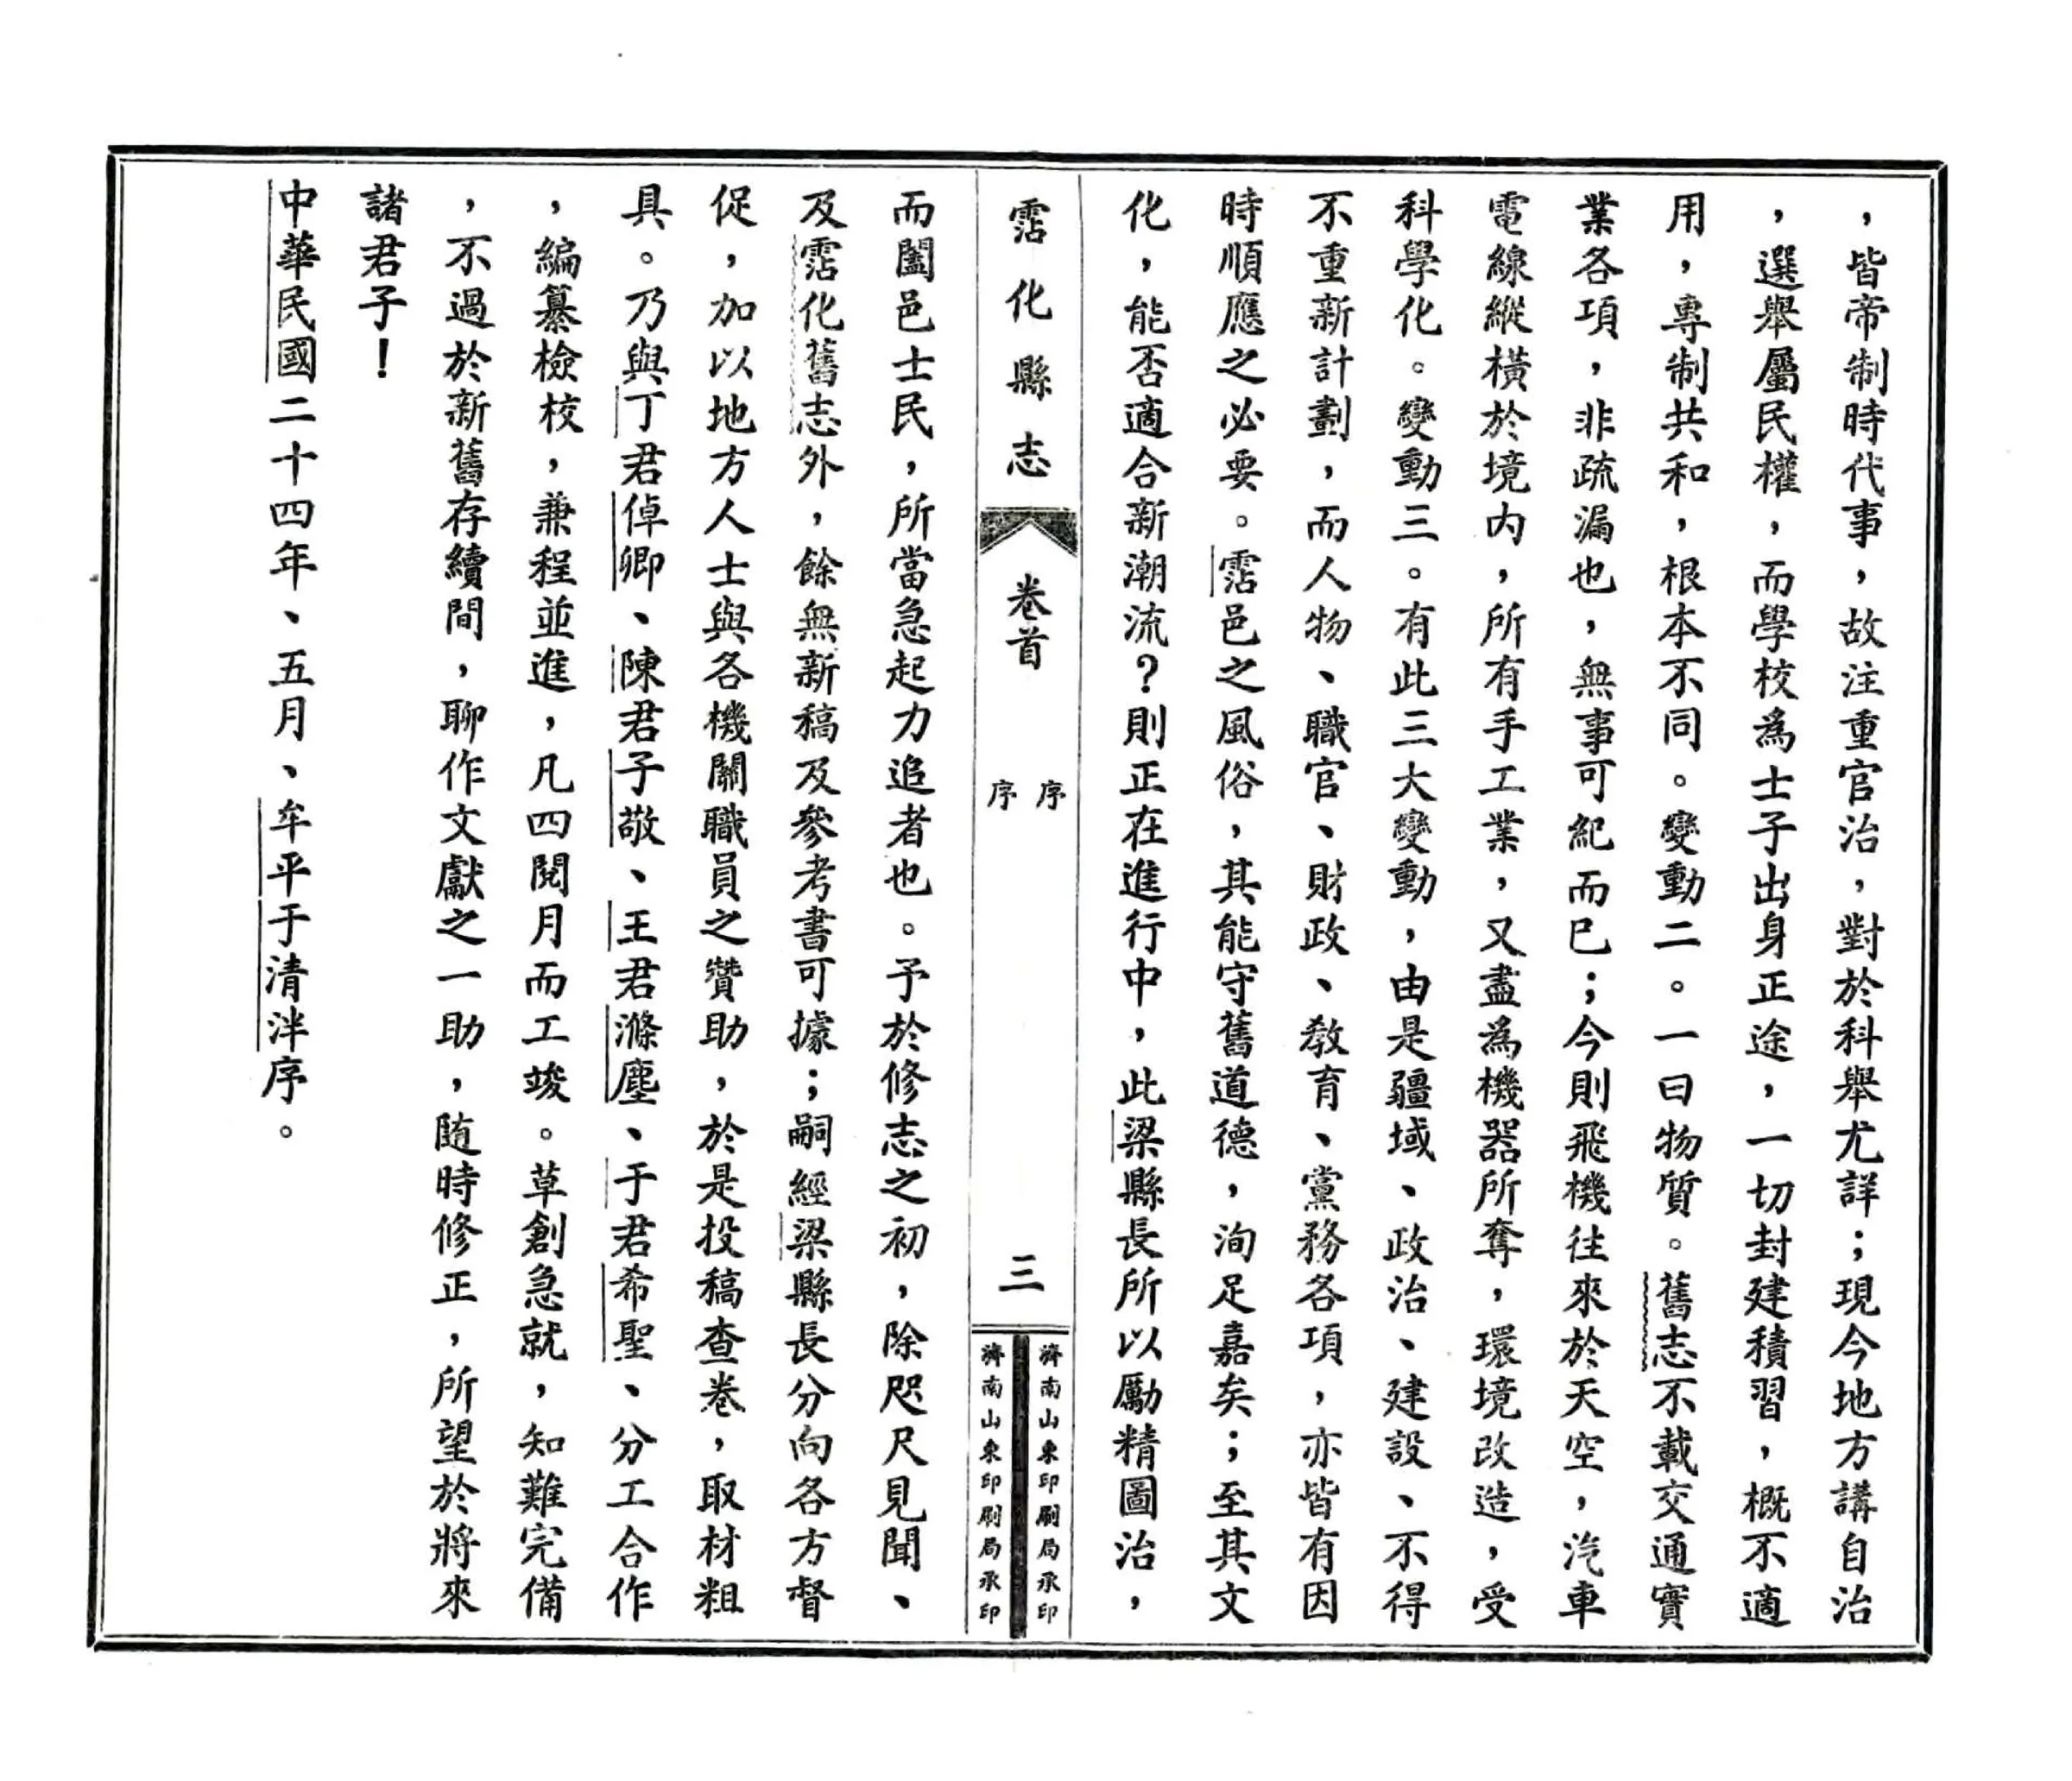 ，皆帝制時代事，故注重官治，對於科舉尤詳；現今地方講自治
，選舉屬民權，而學校爲士子出身正途，一切封建積習，概不適
用，專制共和，根本不同。變動二。一曰物質。舊志不載交通實
業各項，非疏漏也，無事可紀而已；今則飛機往來於天空，汽車
電線縱橫於境内，所有手工業，又盡爲機器所奪，環境改造，受
科學化。變動三。有此三大變動，由是疆域、政治、建設、不得
不重新計劃，而人物、職官、財政、教育、黨務各項，亦皆有因
時順應之必要。霑邑之風俗，其能守舊道德，洵足嘉矣；至其文
化，能否適合新潮流？則正在進行中，此梁縣長所以勵精圖治，
霑化縣志 卷首 序 序 三
濟南山東印刷局承印
濟南山東印刷局承印
而闔邑士民，所當急起力追者也。予於修志之初，除咫尺見聞、
及霑化舊志外，餘無新稿及參考書可據；嗣經梁縣長分向各方督
促，加以地方人士與各機關職員之贊助，於是投稿查卷，取材粗
具。乃與丁君倬卿、陳君子敬、王君滌塵、于君希聖、分工合作
，編纂檢校，兼程並進，凡四閱月而工竣。草創急就，知難完備
，不過於新舊存續間，聊作文獻之一助，随時修正，所望於將來
諸君子！
中華民國二十四年、五月、牟平于清泮序。